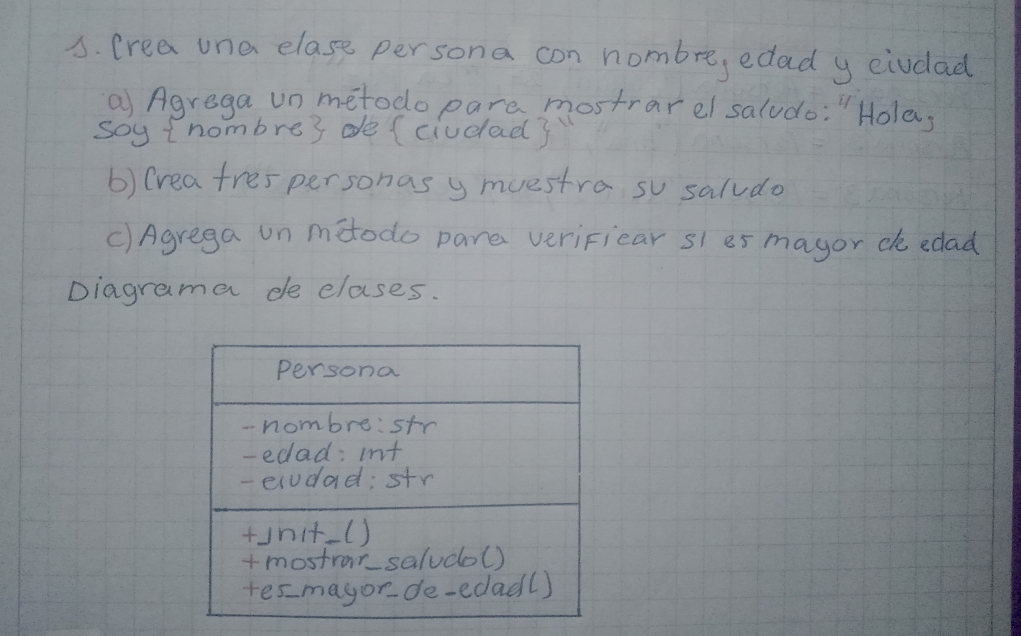 1. Crea una clase persona con nombre, edad y ciudad
a) Agrega un método para mostrar el saludo: "Hola,
soy {nombre} de {ciudad}"
b) Crea tres personas y muestra su saludo
c) Agrega un método para verificar si es mayor de edad
Diagrama de clases.
Persona
-nombre: str
-edad: int
-ciudad: str
+_init_()
+mostrar_saludo()
+es_mayor_de_edad()